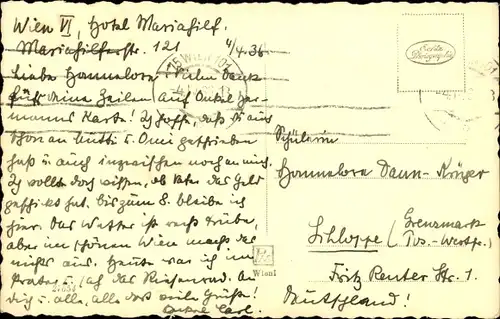 Wien VI, Hotel Mariahilf.
Mariahilferstr. 121 4/4.36
Liebe Hannelore! Vielen Dank
für deine Zeilen auf Onkel Her-
manns Karte! Ich hoffe, daß du aus
schon an Mutti u. Omi geschrieben
hast u. auch inzwischen noch an mich.
Ich wollte doch wissen, ob Vater das Geld
geschickt hat. Bis zum 8. bleibe ich
hier. Das Wetter ist recht trübe,
aber im schönen Wien macht das
nichts aus. Heute war ich im
Prater u. sah das Riesenrad. An
dich u. alle, alle dort viele Grüße!
Onkel Carl.
15 WIEN 101
Echte
Photographie
Schülerin
Hannelore Dann-Krüger
Schloppe (Grenzmark
Pos.-Westpr.)
Fritz Reuter Str. 1.
Deutschland!
Wien I